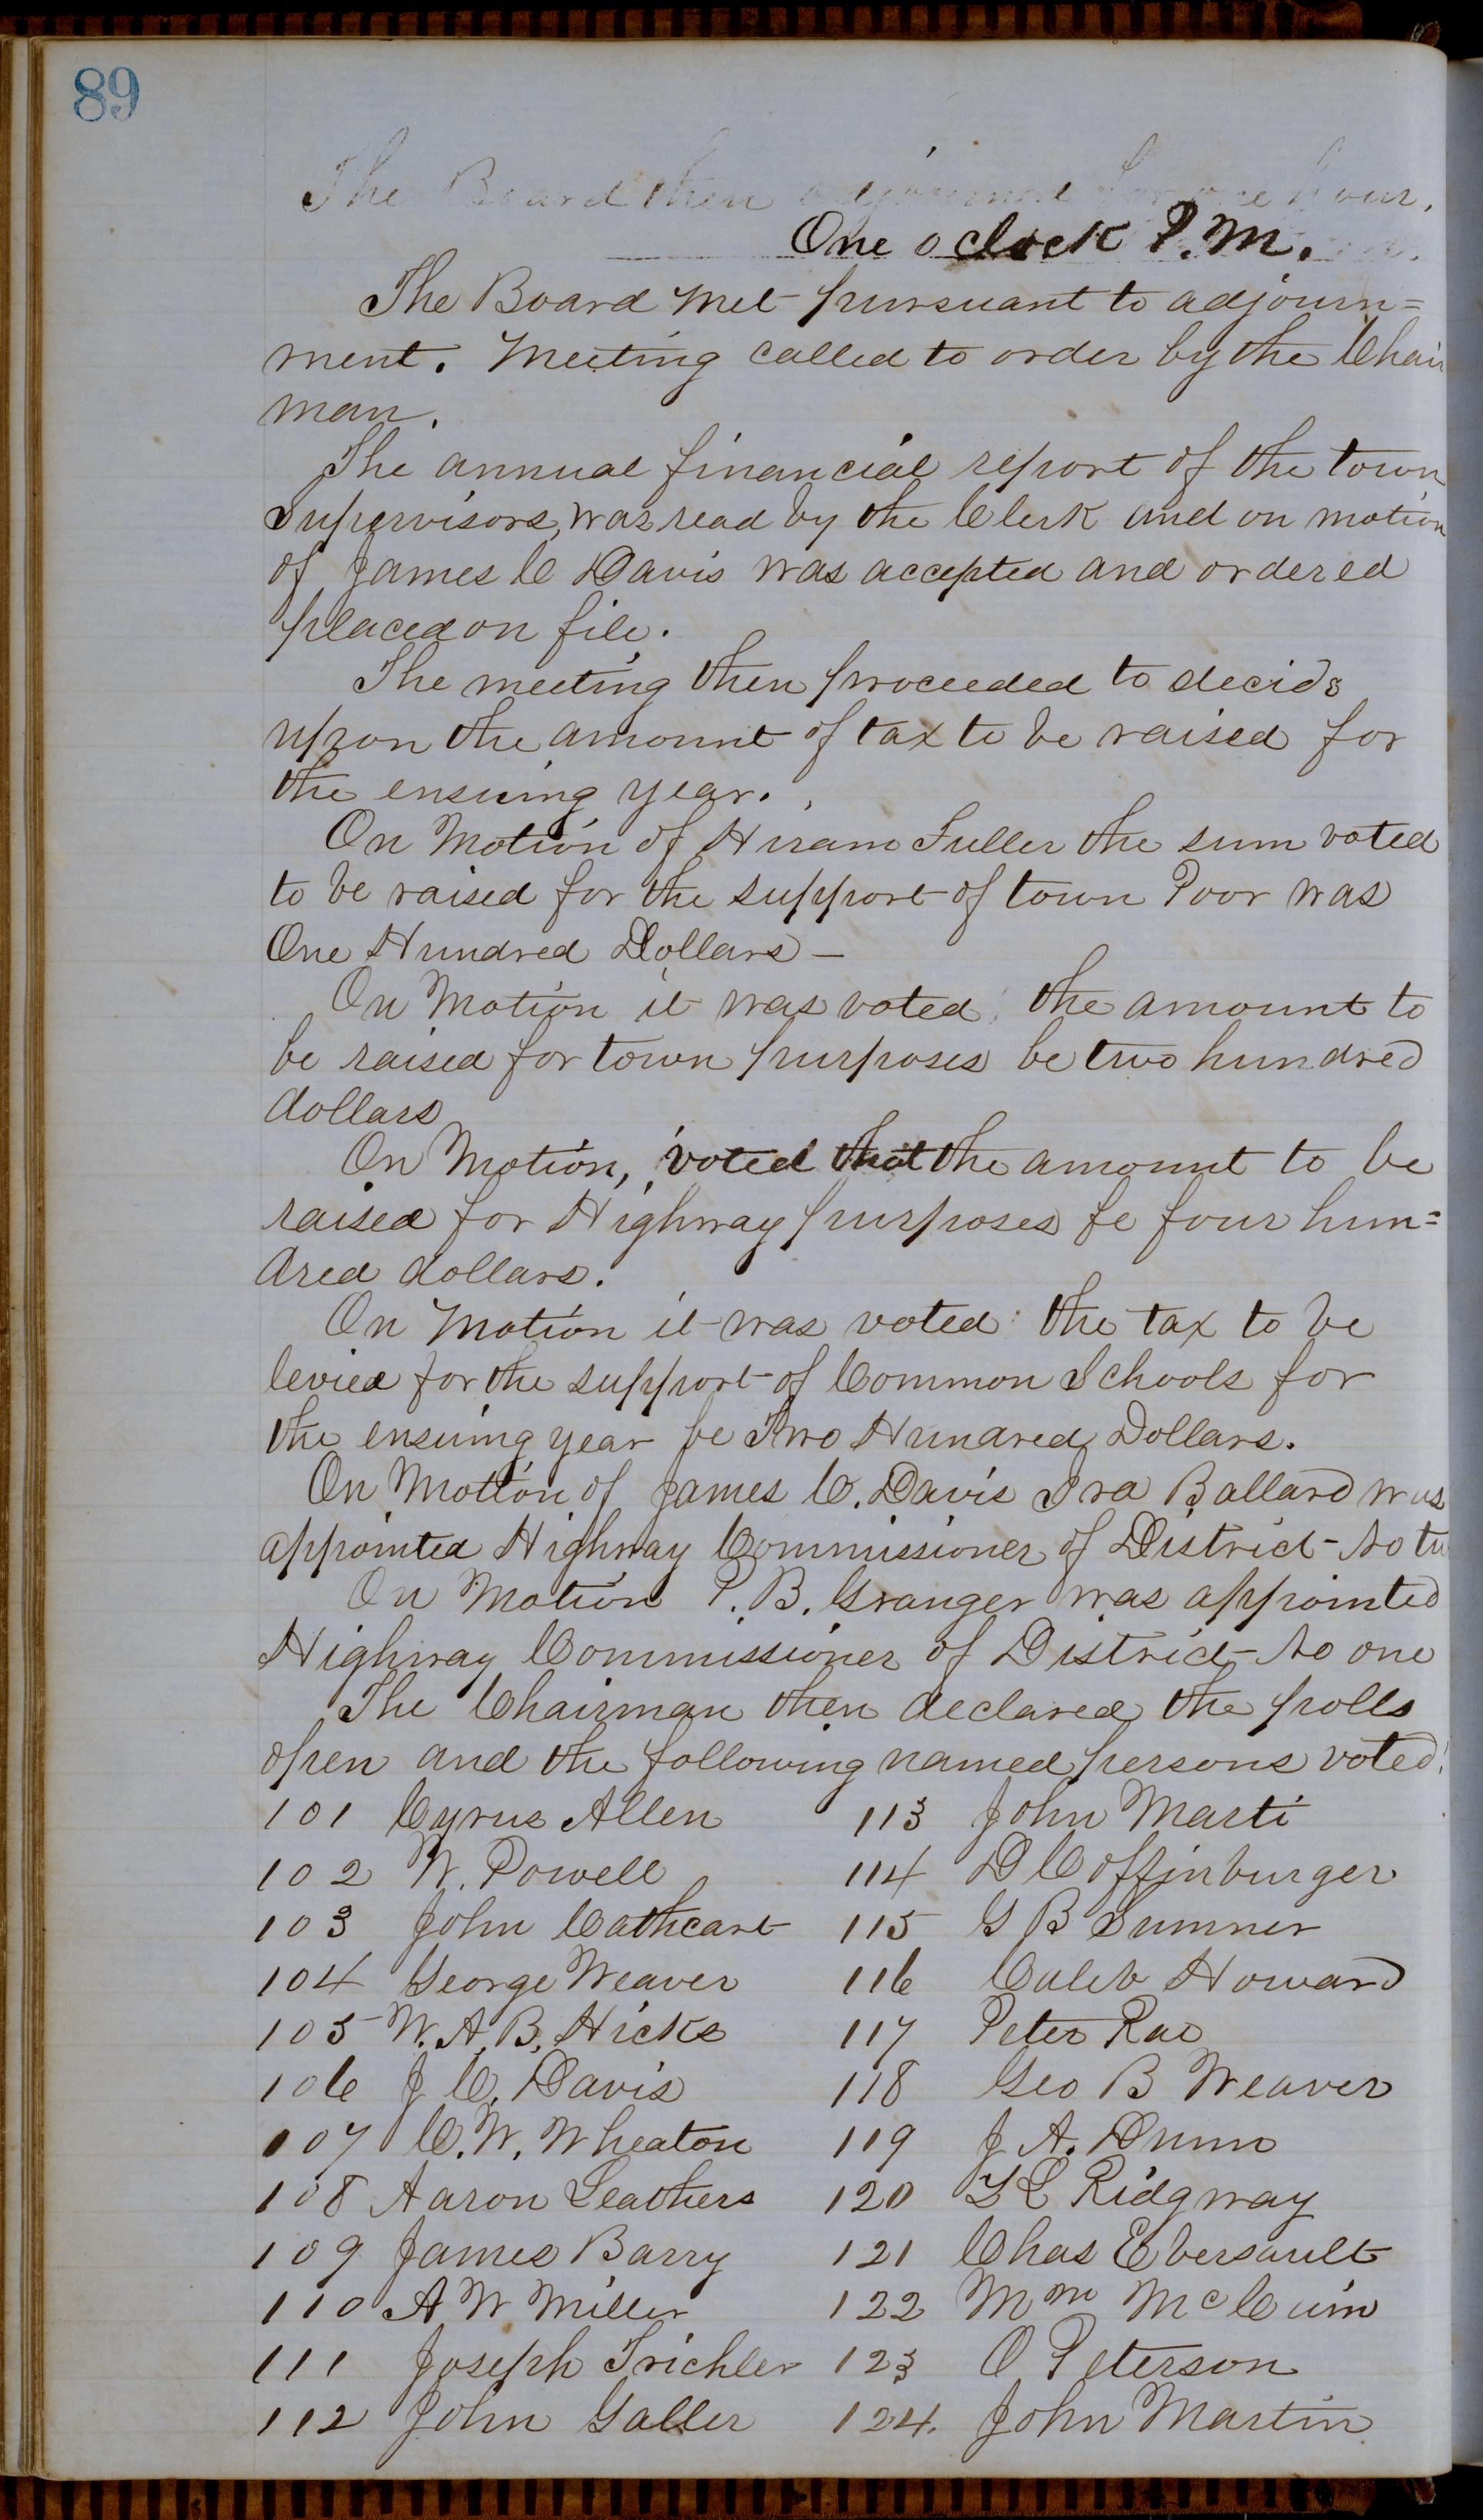 89
The Board then adjourned for one hour.
One o clock P.M.
The Board met pursuant to adjourn=
ment. Meeting called to order by the Chair
man.
The annual financial report of the town
Supervisors, was read by the Clerk and on motion
of James C Davis was accepted and ordered
placed on file.
The meeting then proceeded to decide
upon the amount of tax to be raised for
the ensuing year.
On Motion of Hiram Fuller the sum voted
to be raised for the support of town Poor was
One Hundred Dollars —
On Motion it was voted the amount to
be raised for town purposes be two hundred
dollars
On Motion, voted that the amount to be
raised for Highway purposes be four hun=
dred dollars.
On Motion it was voted the tax to be
levied for the support of Common Schools for
the ensuing year be Two Hundred Dollars.
On Motion of James C. Davis Ira Ballard was
appointed Highway Commissioner of District No
On Motion P. B. Granger was appointed
Highway Commissioner of District No one
The Chairman then declared the polls
open and the following named persons voted:
101 Cyrus Allen
102 W. Powell
103 John Cathcart
104 George Weaver
105 W. A. B. Hicks
106 J C. Davis
107 C. W. Wheaton
108 Aaron Leathers
109 James Barry
110 A W Miller
111 Joseph Trichler
112 John Galler
113 John Marti
114 D Coffinburger
115 G B Sumner
116 Caleb Howard
117 Peter Rae
118 Geo B Weaver
119 J A. Dunn
120 Ridgway
121 Chas Ebersault
122 Wm
123 O Peterson
124. John Martin